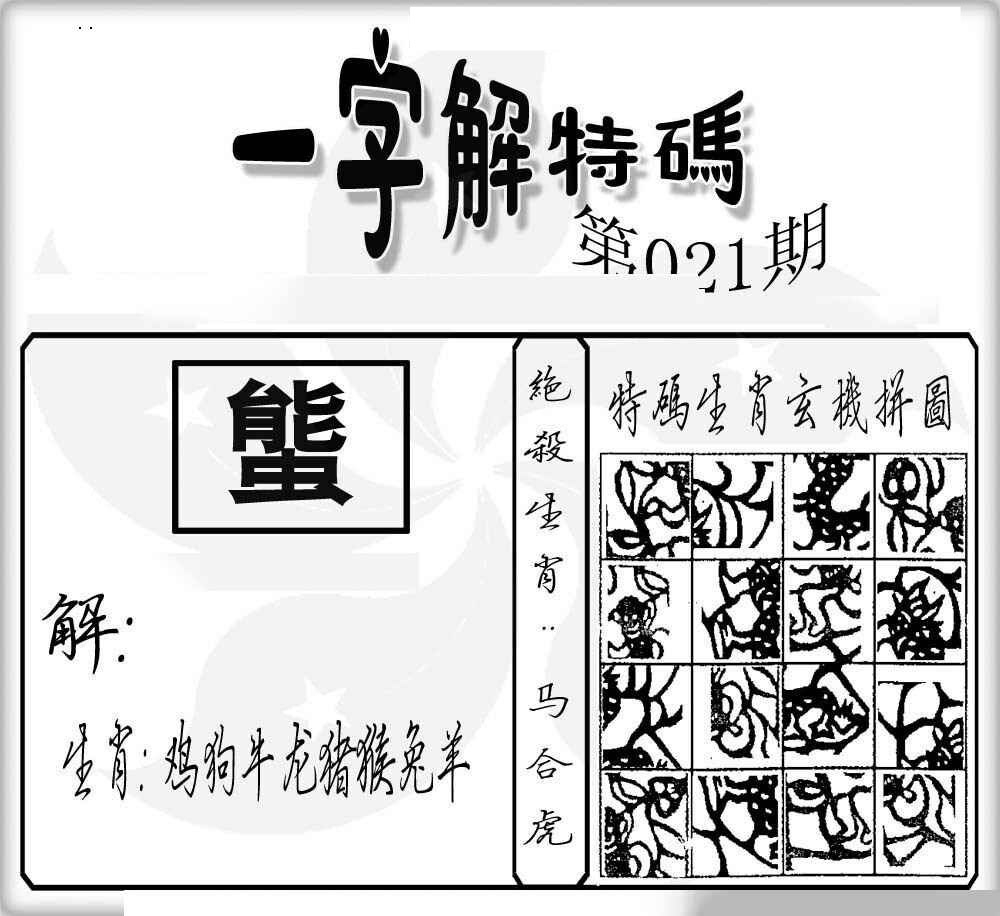 一字解特碼
第021期
螚
解:
生肖: 鸡狗牛龙猪猴兔羊
絶殺生肖：马合虎
特碼生肖玄機拼圖